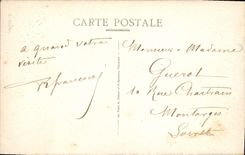 CARTE POSTALE
a quand votre
visite
Monsieur & Madame
Guerot
10 Rue Chartrain
Montargis
Loiret